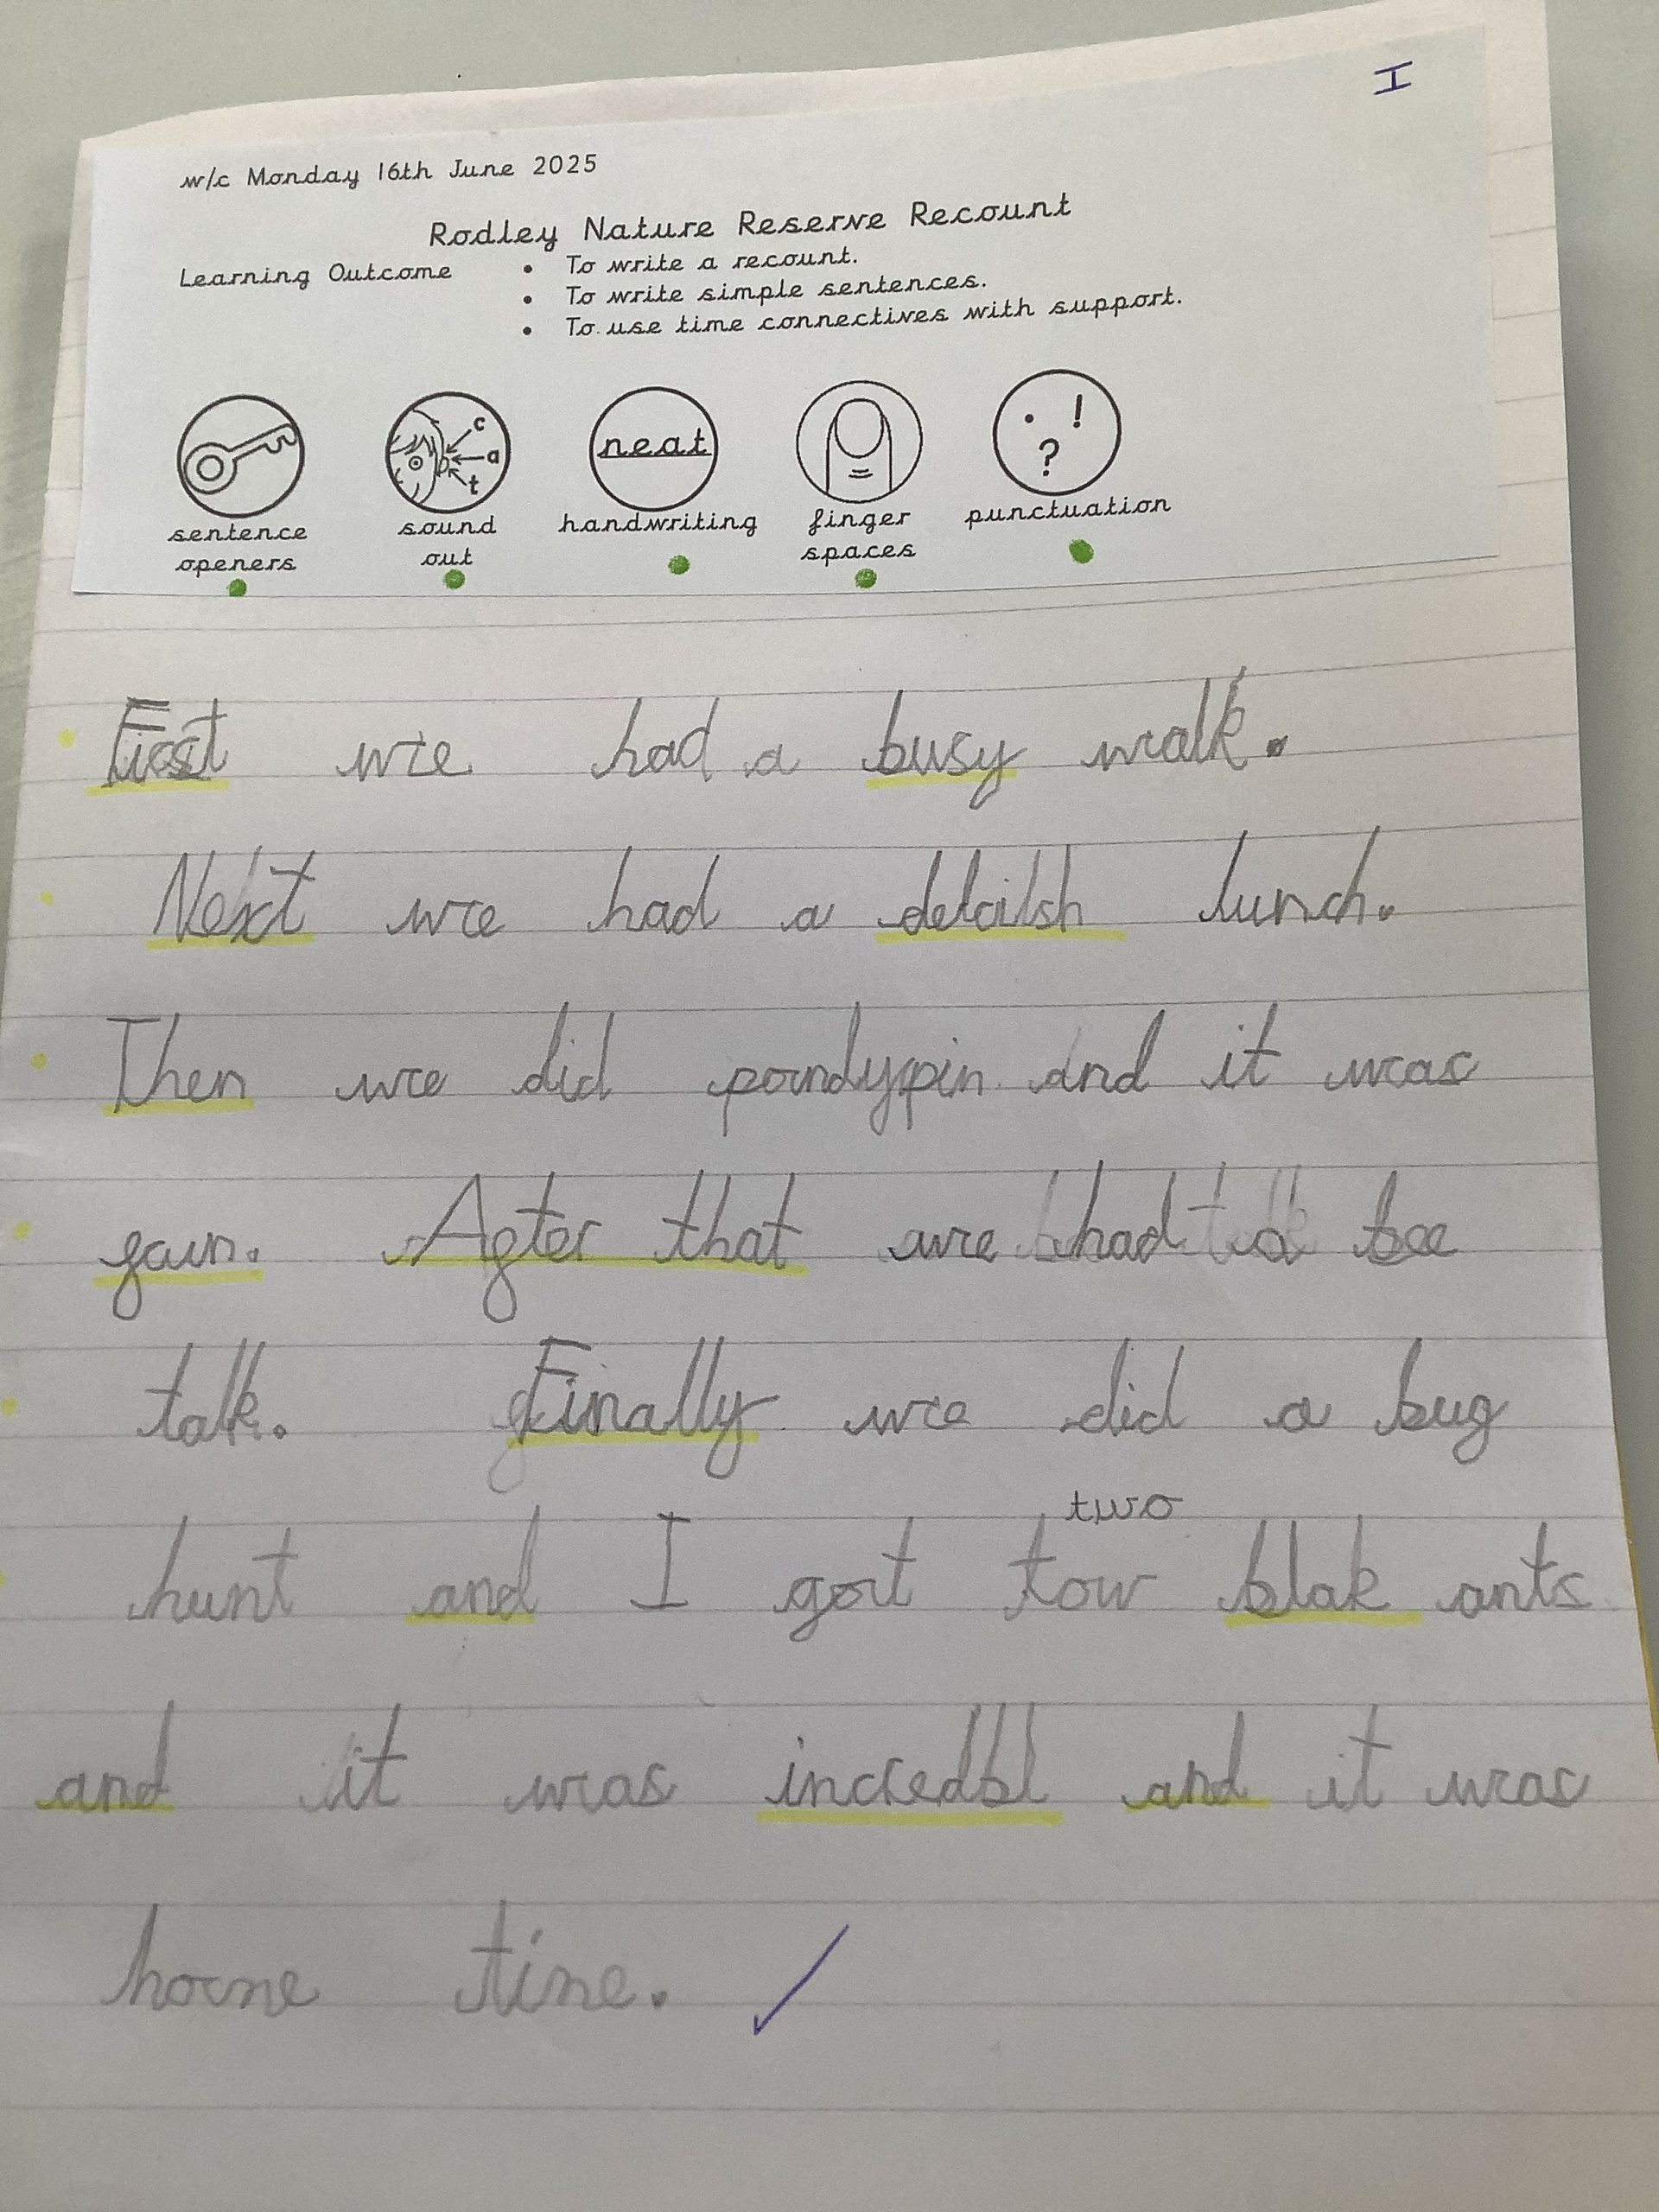 I
w/c Monday 16th June 2025
Rodley Nature Reserve Recount
Learning Outcome • To write a recount.
• To write simple sentences.
• To use time connectives with support.
c
a
t
neat
. !
?
sentence openers
sound out
handwriting
finger spaces
punctuation
First we had a busy walk.
Next we had a delcilsh lunch.
Then we did pondyppin and it was
fun. After that we had a bee
talk. Finally we did a bug
two
hunt and I got tow blak ants
and it was incredbl and it was
home time.